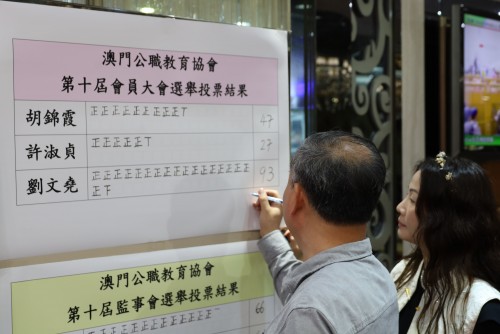 澳門公職教育協會
第十屆會員大會選舉投票結果
胡錦霞 正正正正正正正正正丅 47
許淑貞 正正正正正丅 27
劉文堯 正正正正正正正正正正正正正正正正正 93
正下
澳門公職教育協會
第十屆監事會選舉投票結果
66